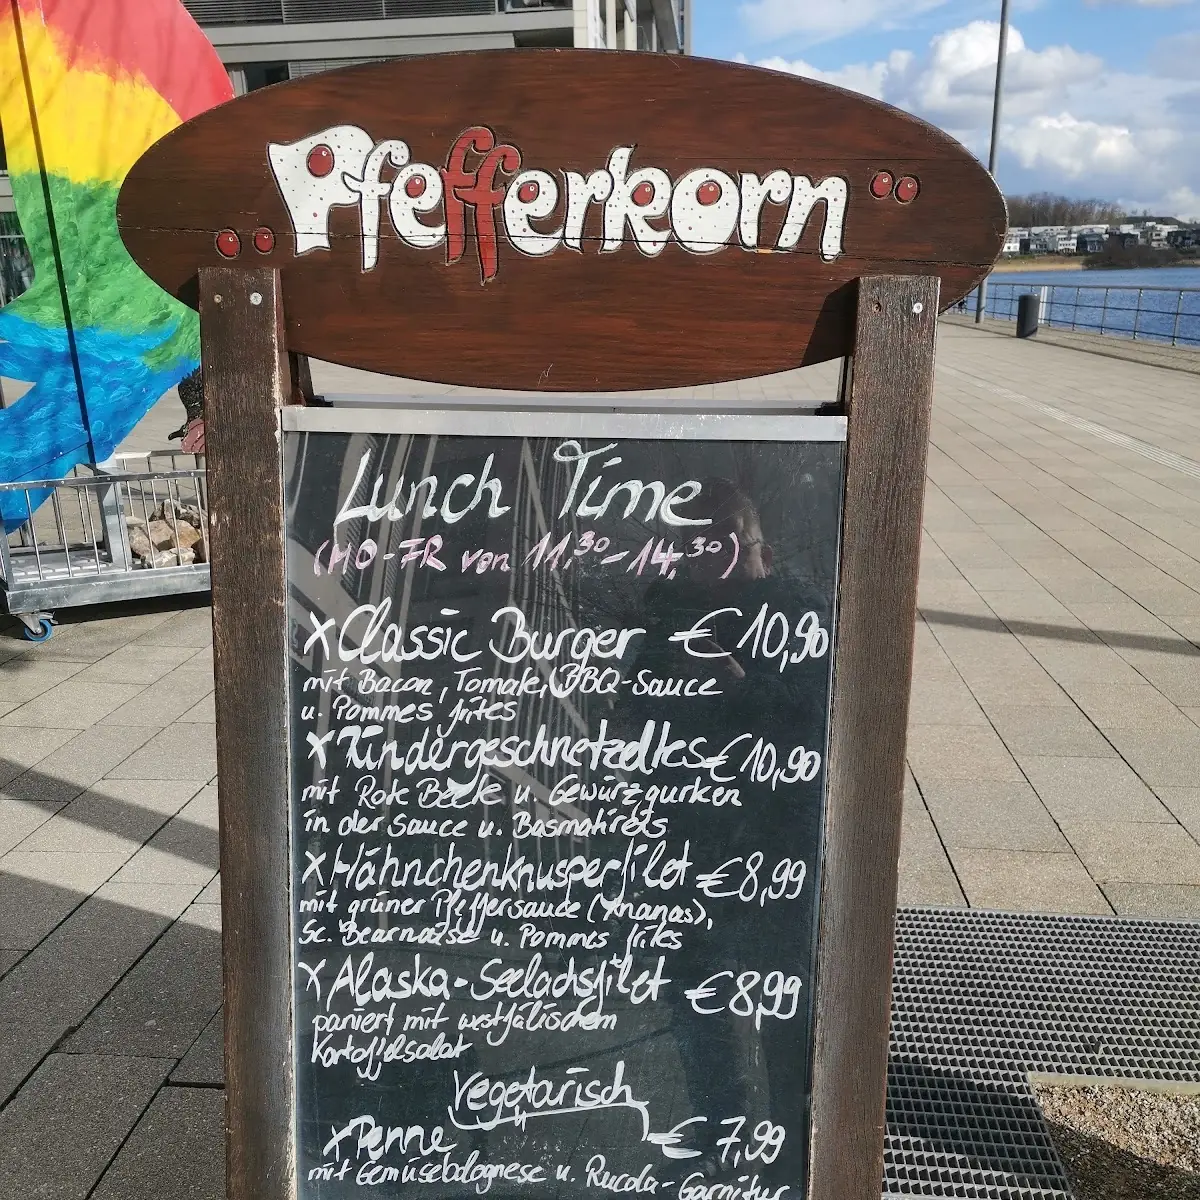 „Pfefferkorn“
Lunch Time
(MO-FR von 11,30-14,30)
x Classic Burger €10,90
mit Bacon, Tomate, BBQ-Sauce
u. Pommes frites
x Rindergeschnetzeltes €10,90
mit Rote Beete u. Gewürzgurken
in der Sauce u. Basmatireis
x Hähnchenknusperfilet €8,99
mit grüner Pfeffersauce (Ananas),
Sc. Bearnaise u. Pommes frites
x Alaska-Seelachsfilet €8,99
paniert mit westfälischem
Kartoffelsalat
Vegetarisch
x Penne € 7,99
mit Gemüsebolognese u. Rucola-Garnitur